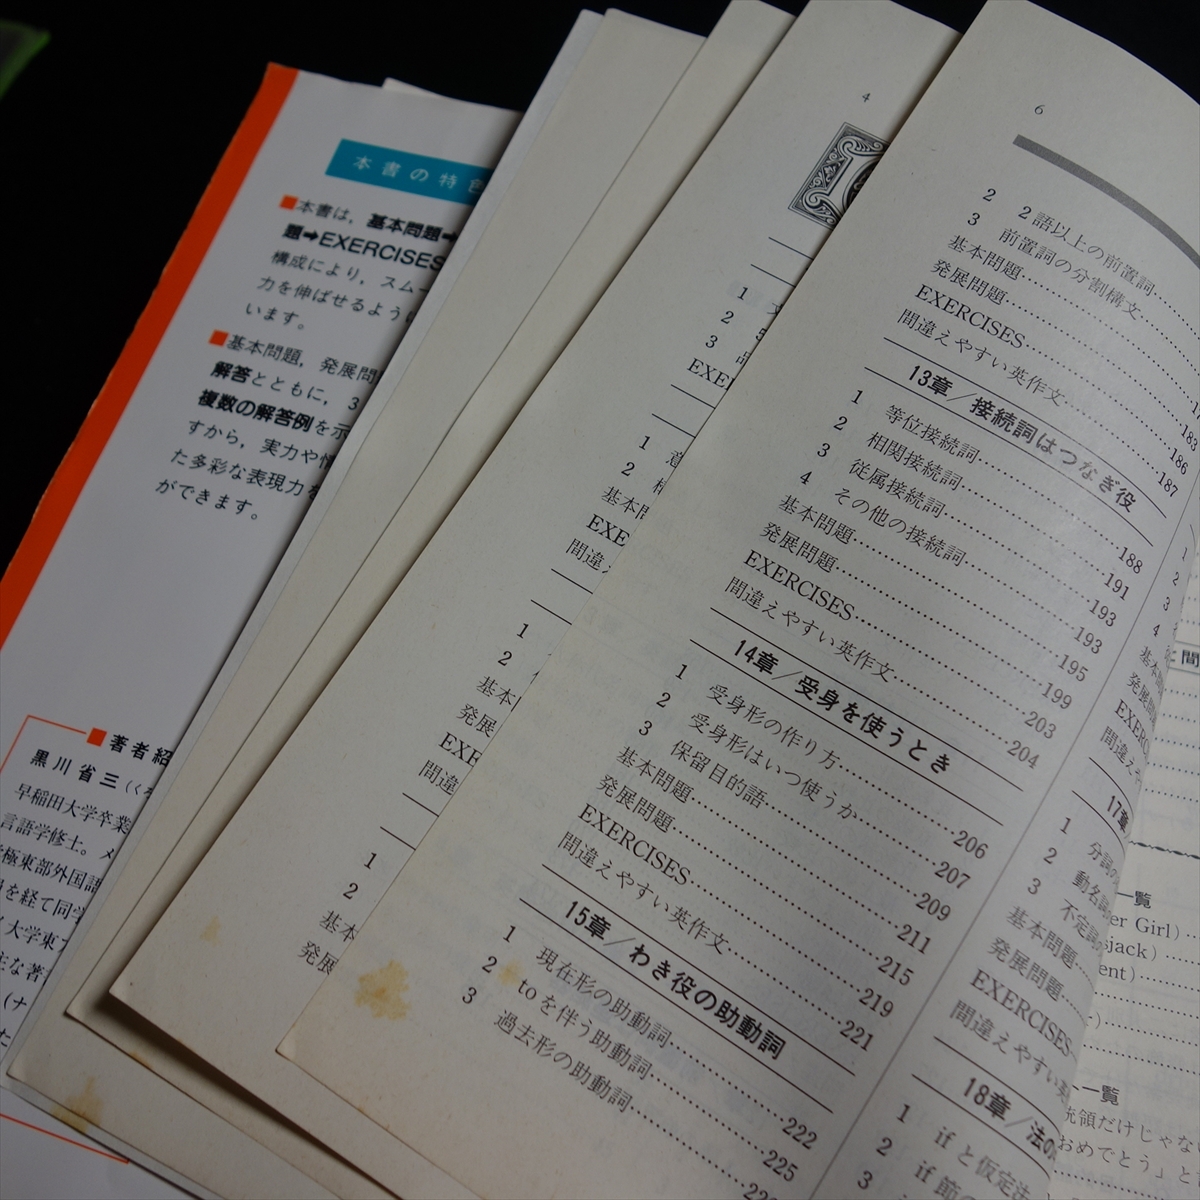 本書の特色
■本書は，基本問題➡
題➡EXERCISES
構成により，スムー
力を伸ばせるように
います。
■基本問題，発展問
解答とともに，3
複数の解答例を示
すから，実力や
た多彩な表現力を
ができます。
■著者紹
黒川省三（くろ
早稲田大学卒業
言語学修士。メ
極東部外国語
を経て同学
大学東
主な著
（ナ
4
1 文
2 5
3 品
EXE
1 意
2
基本
EXE
間違え
1
2
基本
発展
EXE
間違
1
2
基本
発展
6
2 2語以上の前置詞
3 前置詞の分割構文
基本問題
発展問題 183
EXERCISES 186
間違えやすい英作文 187
13章／接続詞はつなぎ役
1 等位接続詞 188
2 相関接続詞 191
3 従属接続詞 193
4 その他の接続詞 193
基本問題 195
発展問題 199
EXERCISES 203
間違えやすい英作文 204
14章／受身を使うとき
1 受身形の作り方 206
2 受身形はいつ使うか 207
3 保留目的語 209
基本問題 211
発展問題 215
EXERCISES 219
間違えやすい英作文 221
15章／わき役の助動詞
1 現在形の助動詞 222
2 toを伴う助動詞 225
3 過去形の助動詞
1
2
3
4
基本
発展
EXER
間違え
17章
1 分詞の
2 動名詞
3 不定詞
基本問題
発展問題
EXERCISES
間違えやすい英
18章／法の
1 ifと仮定法
2 if節
3
間
一覧
er Girl)
sjack)
ent)
一覧
統領だけじゃな
おめでとう」と